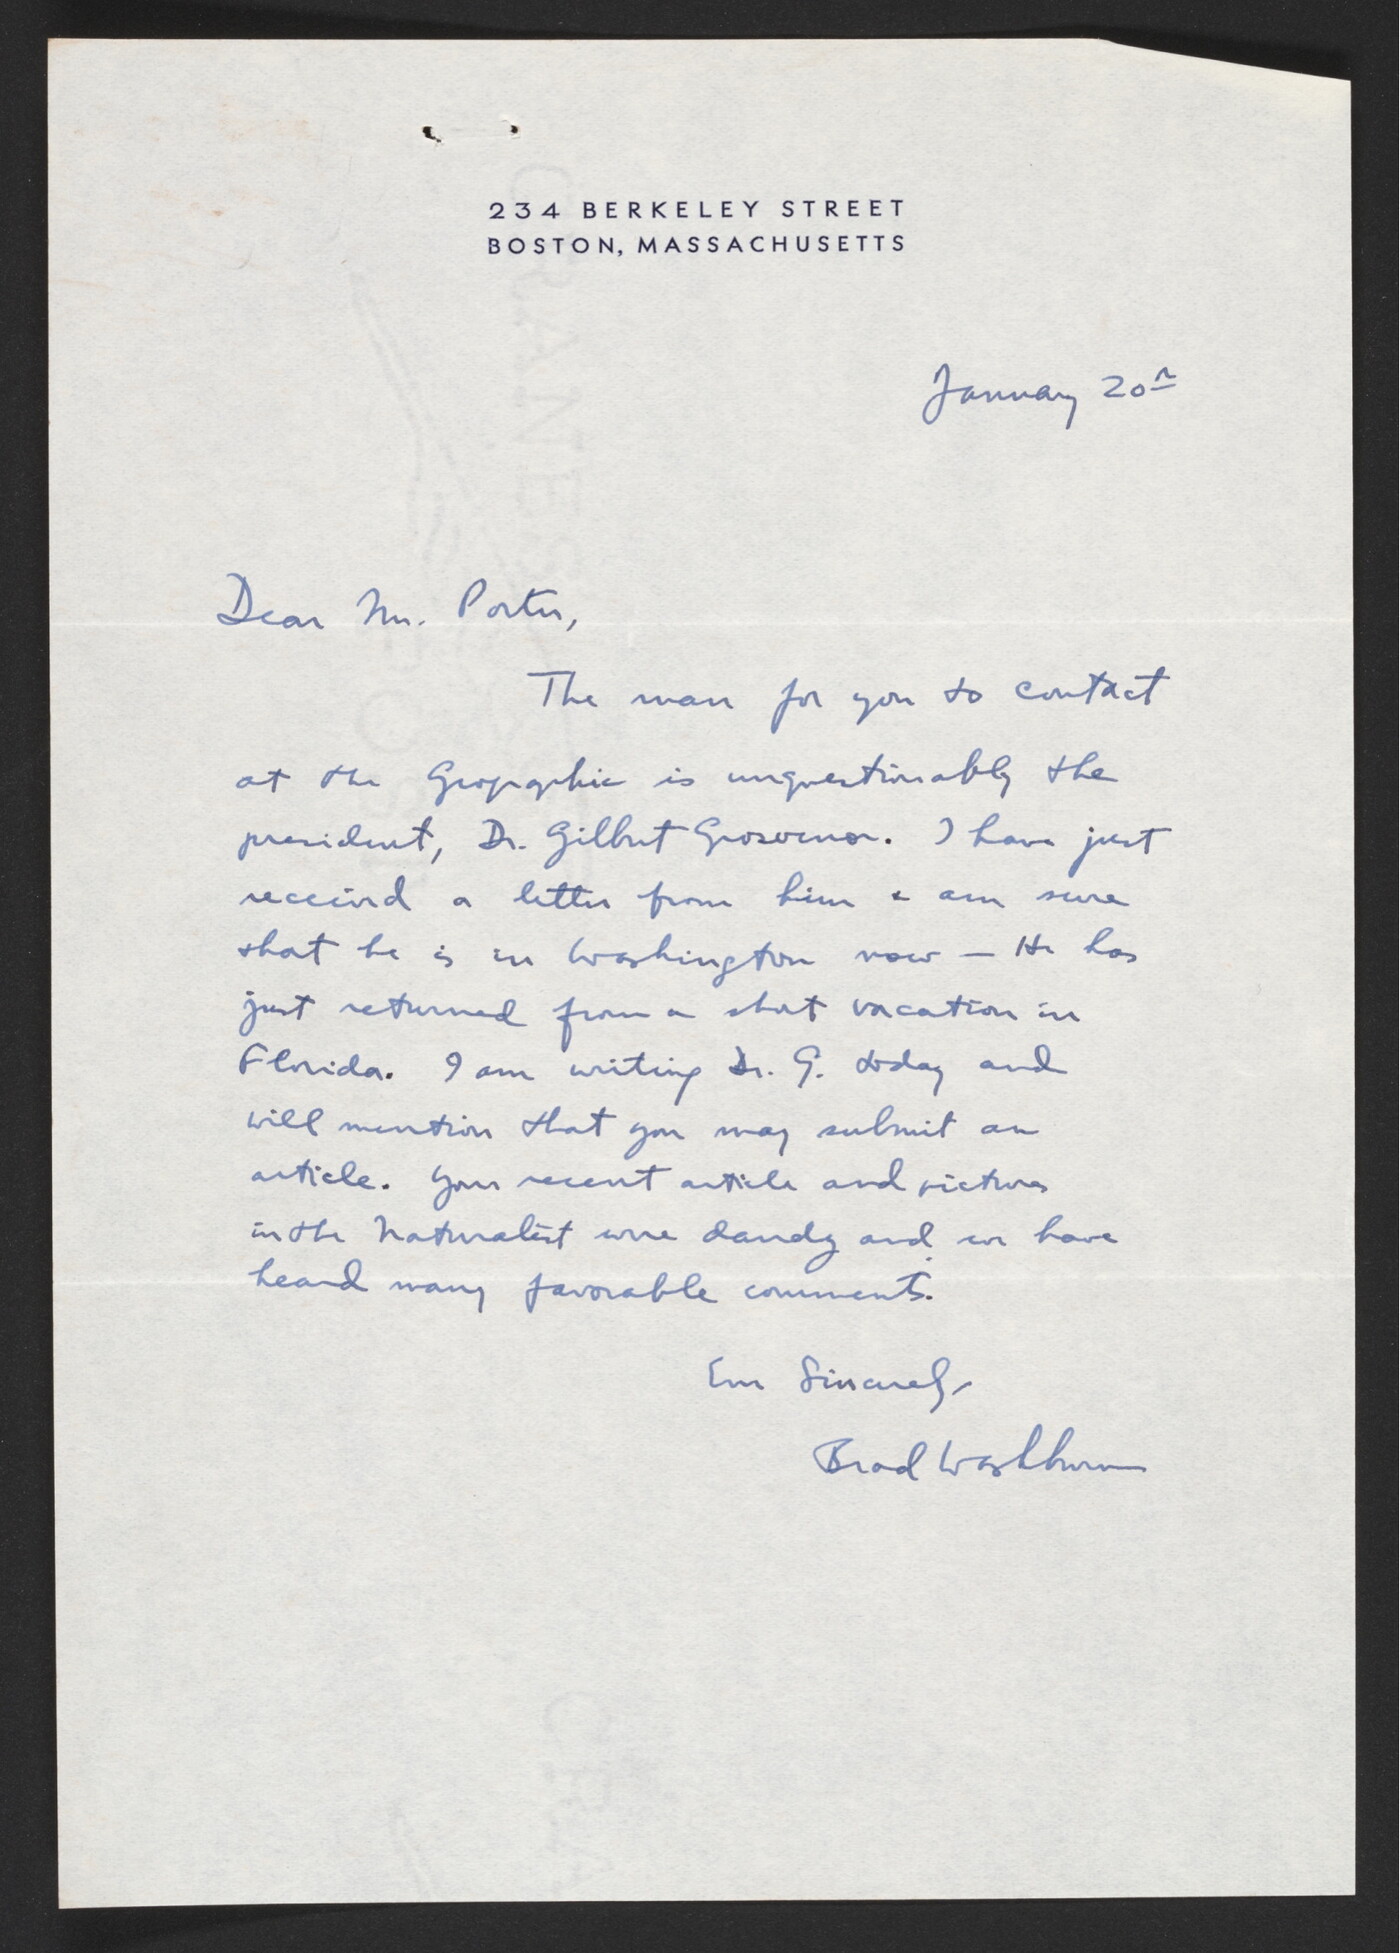 234 BERKELEY STREET
BOSTON, MASSACHUSETTS
January 20th
Dear Mr. Porter,
The man for you to contact
at the Geographic is unquestionably the
president, Dr. Gilbert Grosvenor. I have just
received a letter from him & am sure
that he is in Washington now — He has
just returned from a short vacation in
Florida. I am writing Dr. G. today and
will mention that you may submit an
article. Your recent article and pictures
in the Naturalist were dandy and we have
heard many favorable comments.
Ever Sincerely,
Brad Washburn